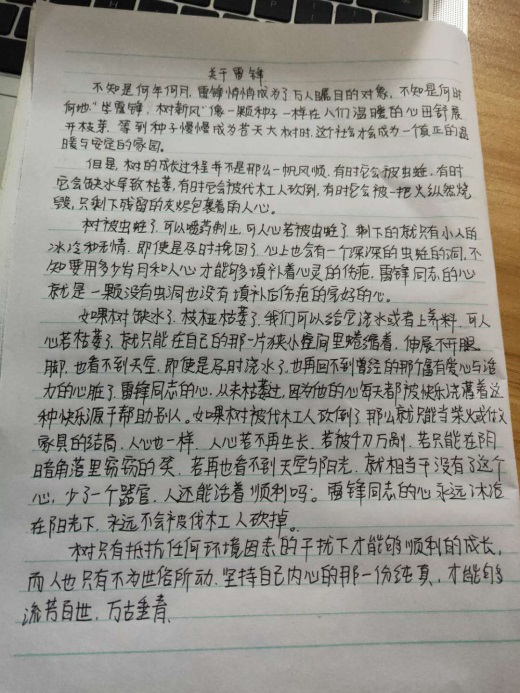 关于雷锋
不知是何年何月,雷锋悄悄成为了万人瞩目的对象,不知是何时
何地,"学雷锋,树新风"像一颗种子一样在人们温暖的心田舒展
开枝芽,等到种子慢慢成为苍天大树时,这个社会才会成为一个真正的温
暖与安定的家园。
但是,树的成长过程并不是那么一帆风顺,有时它会被虫蛀,有时
它会缺水导致枯萎,有时它会被伐木工人砍倒,有时它会被一把火纵然烧
毁,只剩下残留的灰烬包裹着雨人心。
树被虫蛀了,可以喷药制止,可人心若被虫蛀了,剩下的就只有小人的
冰冷和无情,即使是及时挽回了,心上也会有一个深深的虫蛀的洞,不
知要用多少岁月和人心才能够填补着心灵的伤疤,雷锋同志的心
就是一颗没有虫洞也没有填补后伤疤的完好的心。
如果树缺水了,枝桠枯萎了,我们可以给它浇水或者上养料,可人
心若枯萎了,就只能在自己的那一片狭小空间里蜷缩着,伸展不开腿
脚,也看不到天空,即使是及时浇水了,也再回不到曾经的那个富有爱心与活
力的心脏了,雷锋同志的心,从未枯萎过,因为他的心每天都被快乐浇灌着这
种快乐源于帮助别人。如果树被伐木工人砍倒了,那么就只能当柴火或作文
家具的结局,人心也一样,人心若不再生长,若被千刀万剐,若只能在阴
暗角落里窃窃的笑,若再也看不到天空与阳光,就相当于没有了这个
心,少了一个器官,人还能活着顺利吗?雷锋同志的心永远沐浴
在阳光下,永远不会被伐木工人砍掉。
树只有抵抗任何环境因素的干扰下才能够顺利的成长,
而人也只有不为世俗所动,坚持自己内心的那一份纯真,才能够
流芳百世,万古垂青,